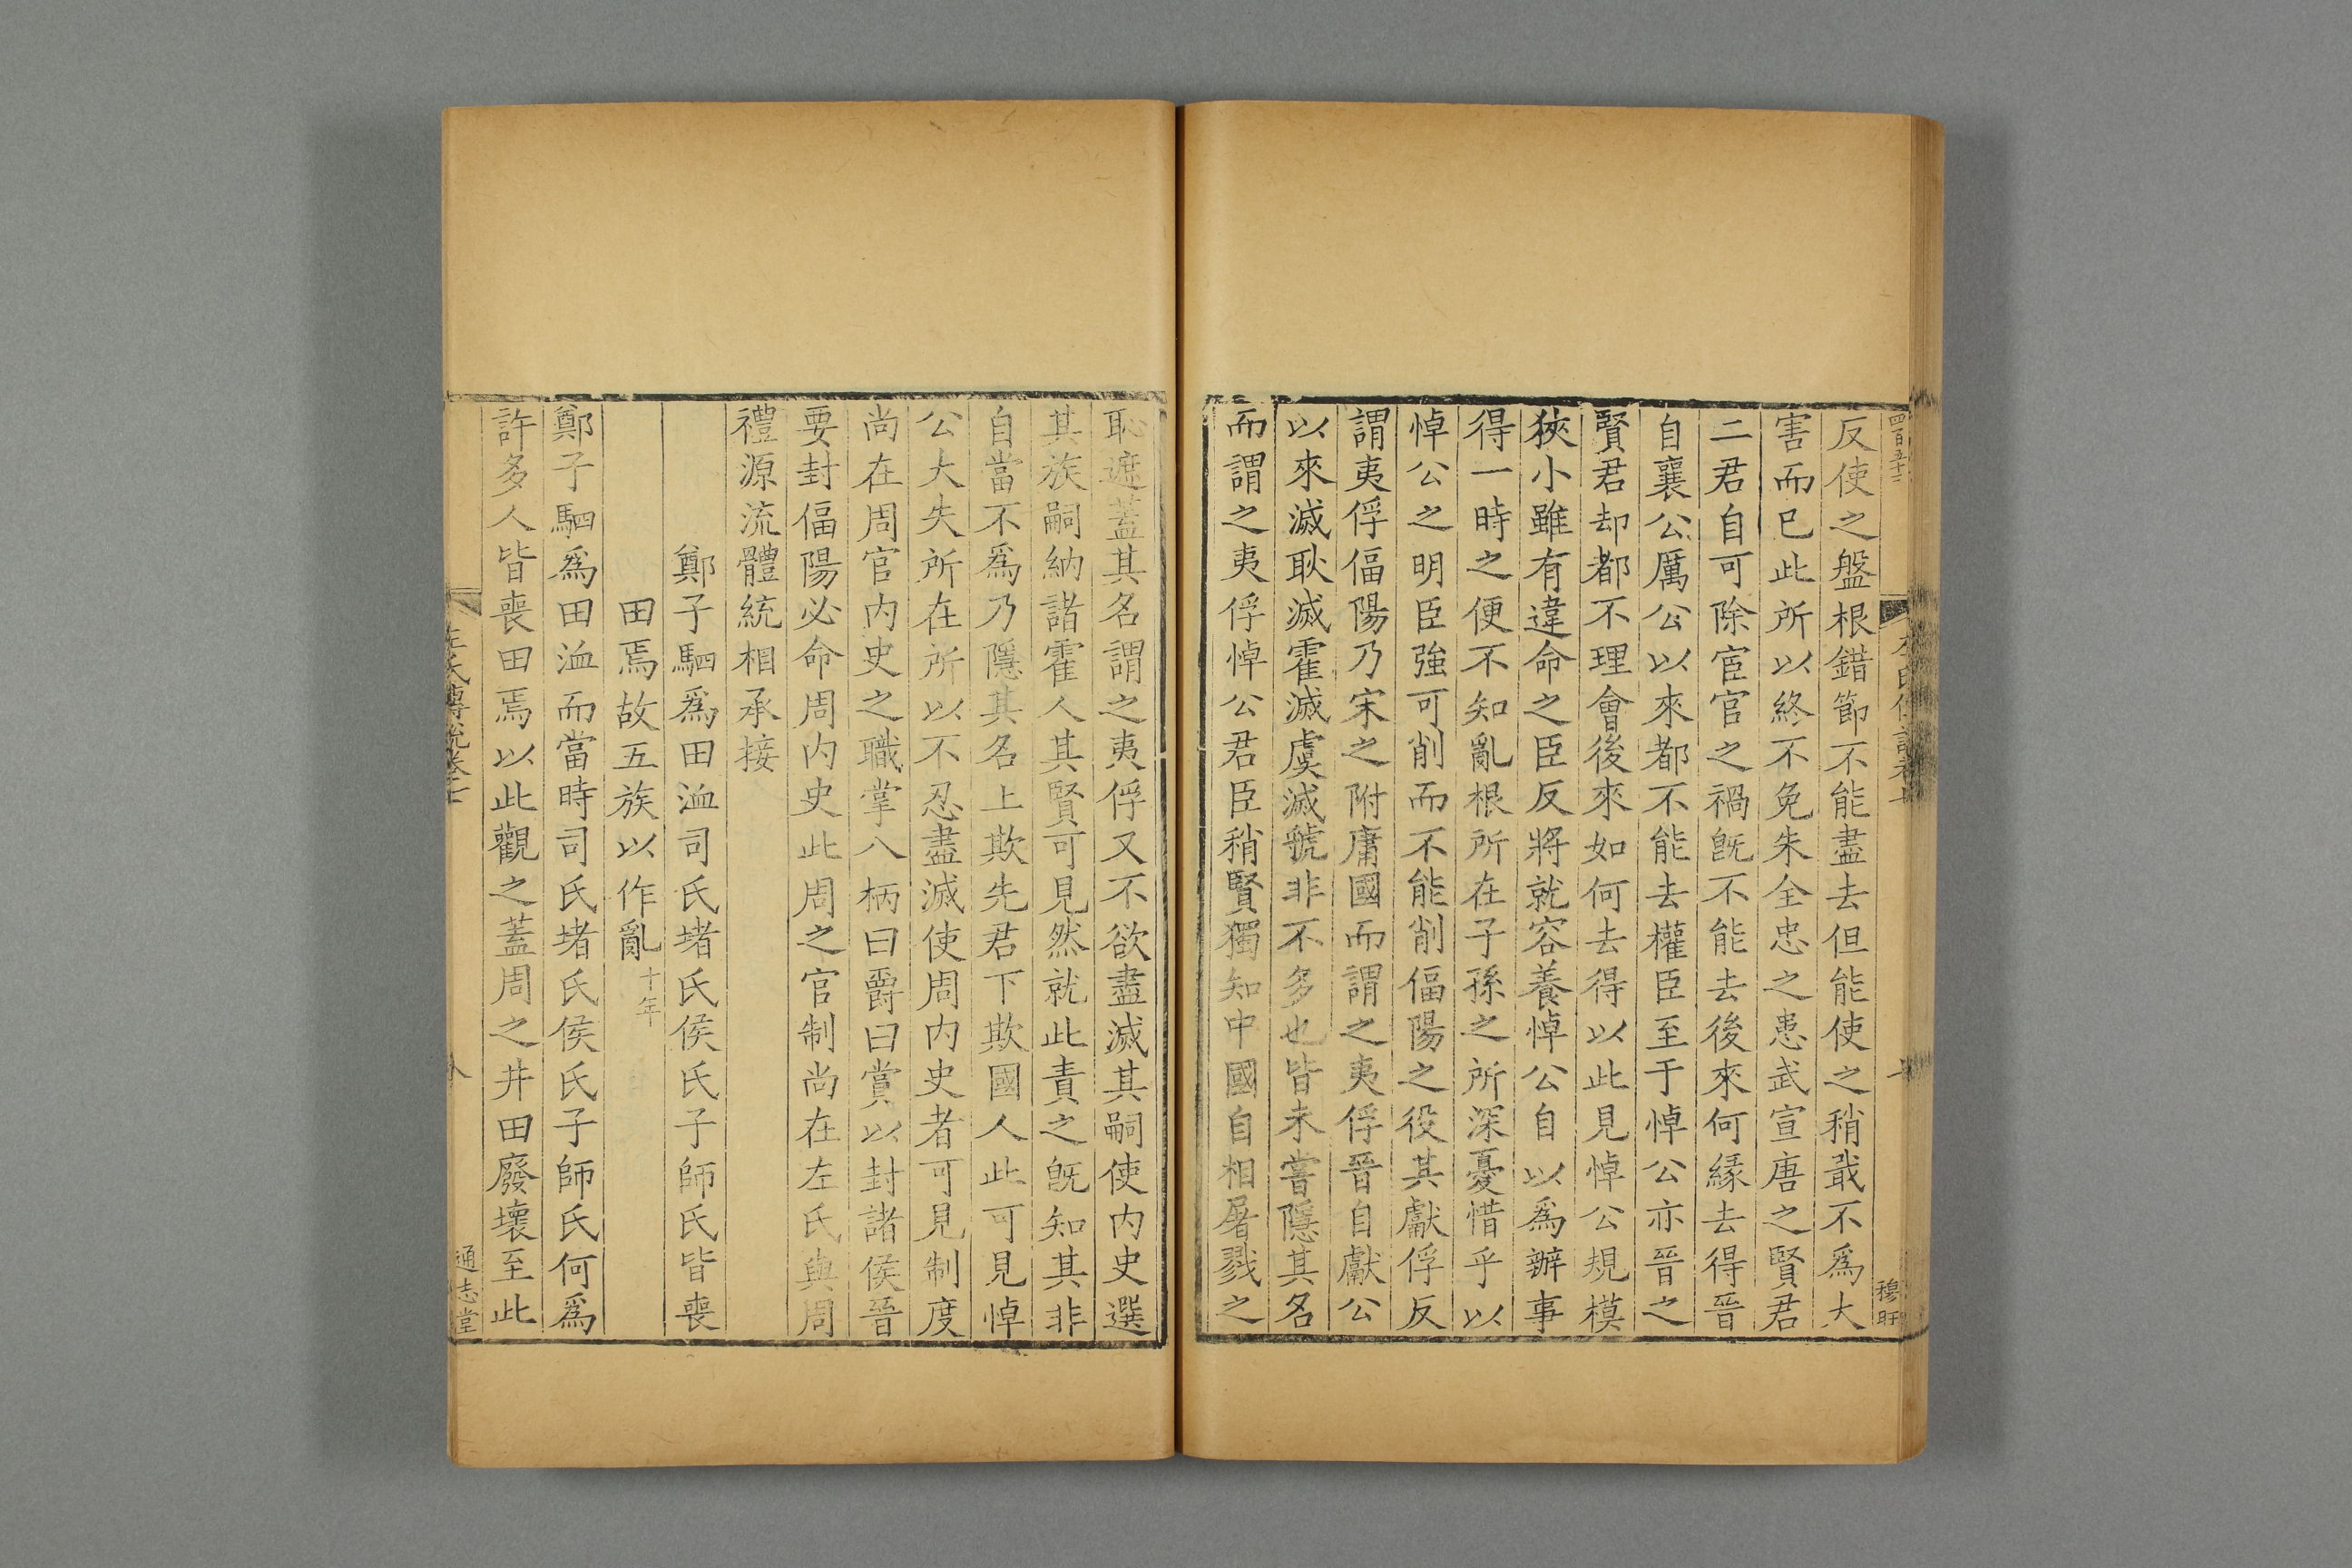 四百五十三
反使之盤根錯節不能盡去但能使之稍戢不爲大
害而巳此所以終不免朱全忠之患武宣唐之賢君
二君自可除宦官之禍旣不能去後來何緣去得晉
自襄公厲公以來都不能去權臣至于悼公亦晉之
賢君却都不理會後來如何去得以此見悼公規模
狹小雖有違命之臣反將就容養悼公自以爲辦事
得一時之便不知亂根所在子孫之所深憂惜乎以
悼公之明臣強可削而不能削偪陽之役其獻俘反
謂夷俘偪陽乃宋之附庸國而謂之夷俘晉自獻公
以來滅耿滅霍滅虞滅虢非不多也皆未嘗隱其名
而謂之夷俘悼公君臣稍賢獨知中國自相屠戮之
穆旺
恥遮蓋其名謂之夷俘又不欲盡滅其嗣使内史選
其族嗣納諸霍人其賢可見然就此責之旣知其非
自當不爲乃隱其名上欺先君下欺國人此可見悼
公大失所在所以不忍盡滅使周内史者可見制度
尚在周官内史之職掌八柄曰爵曰賞以封諸侯晉
要封偪陽必命周内史此周之官制尚在左氏與周
禮源流體統相承接
鄭子駟爲田洫司氏堵氏侯氏子師氏皆喪
田焉故五族以作亂十年
鄭子駟爲田洫而當時司氏堵氏侯氏子師氏何爲
許多人皆喪田焉以此觀之蓋周之井田廢壞至此
左氏傳說卷七
八
通志堂